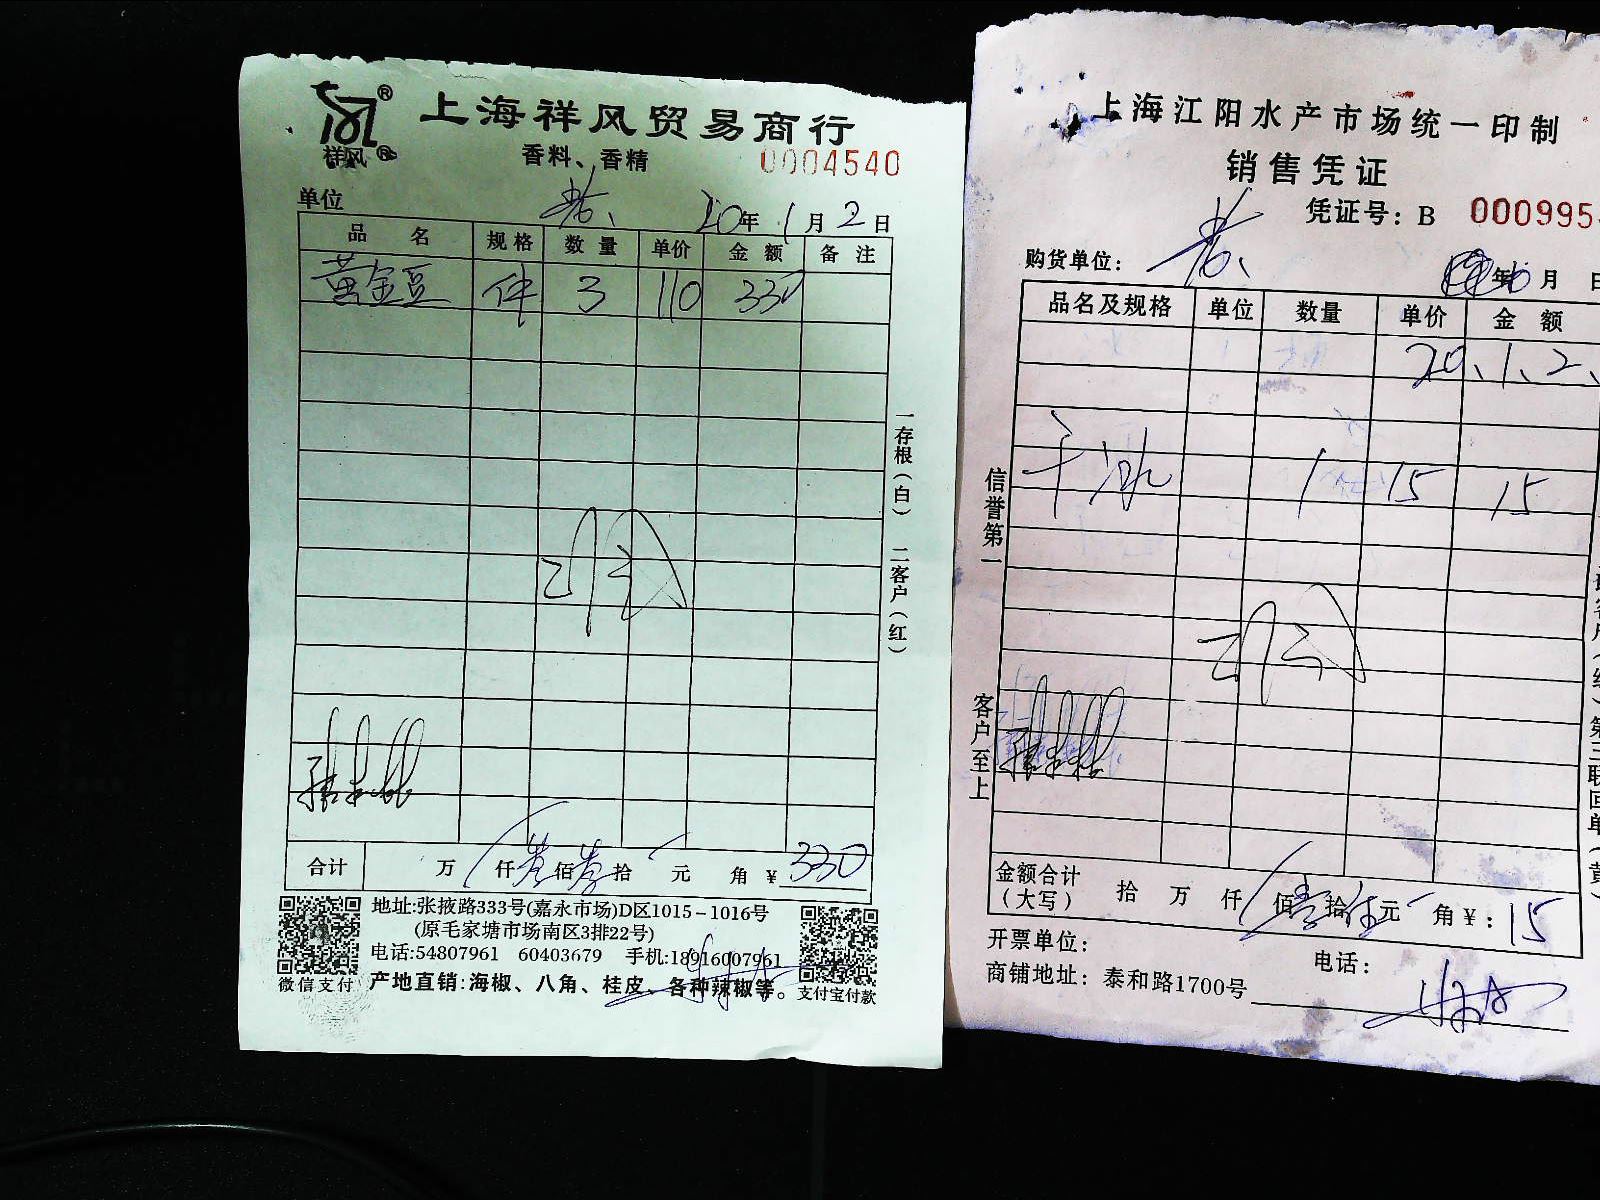 上海祥风贸易商行
祥风
香料、香精
0004540
单位
20年1月2日
品名 规格 数量 单价 金额 备注
黄金豆 件 3 110 330
一存根（白） 二客户（红）
合计 万 仟 佰 拾 元 角 ¥330
地址:张掖路333号(嘉永市场)D区1015-1016号
(原毛家塘市场南区3排22号)
电话:54807961 60403679 手机:18916007961
产地直销:海椒、八角、桂皮、各种辣椒等。
微信支付
支付宝付款
上海江阳水产市场统一印制
销售凭证
凭证号: B 000995
购货单位:
年 月 日
品名及规格 单位 数量 单价 金额
20.1.2.
干冰 1 15 15
信誉第一
客户至上
第三联回单（黄）
金额合计
（大写） 拾 万 仟 佰壹拾伍元 角¥:15
开票单位:
电话:
商铺地址: 泰和路1700号